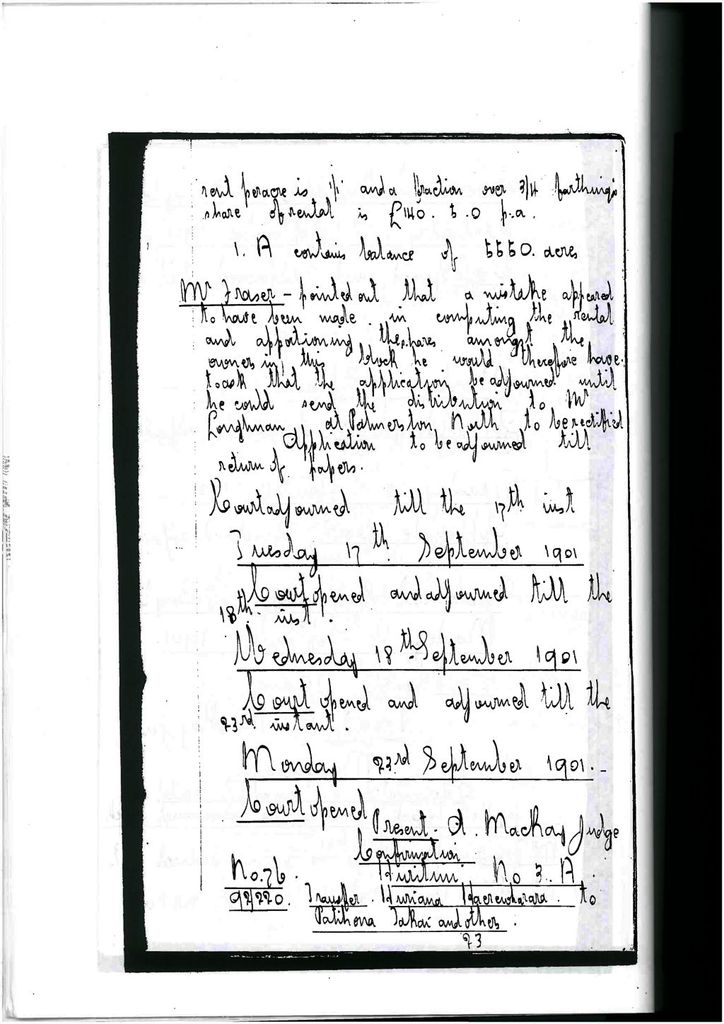 rent per acre is 1/1 and a fraction over 3/4 farthings
share of rental is £140. 5. 0 p.a.
1. A contains balance of 5550. acres
Mr Fraser - pointed out that a mistake appeared
to have been made in computing the rental
and apportioning the shares amongst the
owners in this block he would therefore have
to ask that the application be adjourned until
he could send the distribution to Mr
Loughnan at Palmerston North to be rectified
Application to be adjourned till
return of papers.
Court adjourned till the 17th inst
Tuesday 17th September 1901
Court opened and adjourned till the
18th inst.
Wednesday 18th September 1901
Court opened and adjourned till the
23rd instant.
Monday 23rd September 1901.-
Court opened
Present - A. MacKay Judge
Confirmation
No. 76. No 3. A.
Transfer. to
and others.
23